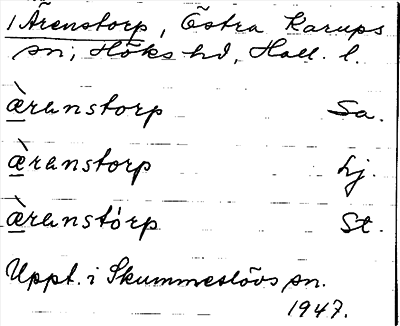 1 Ärenstorp, Östra Karups
sn, Höks hd, Hall. l.
æ̀ranstorp Sa.
æ̀ranstorp Lj.
æ̀ranstórp St.
Uppt. i Skummeslövs sn.
1947.